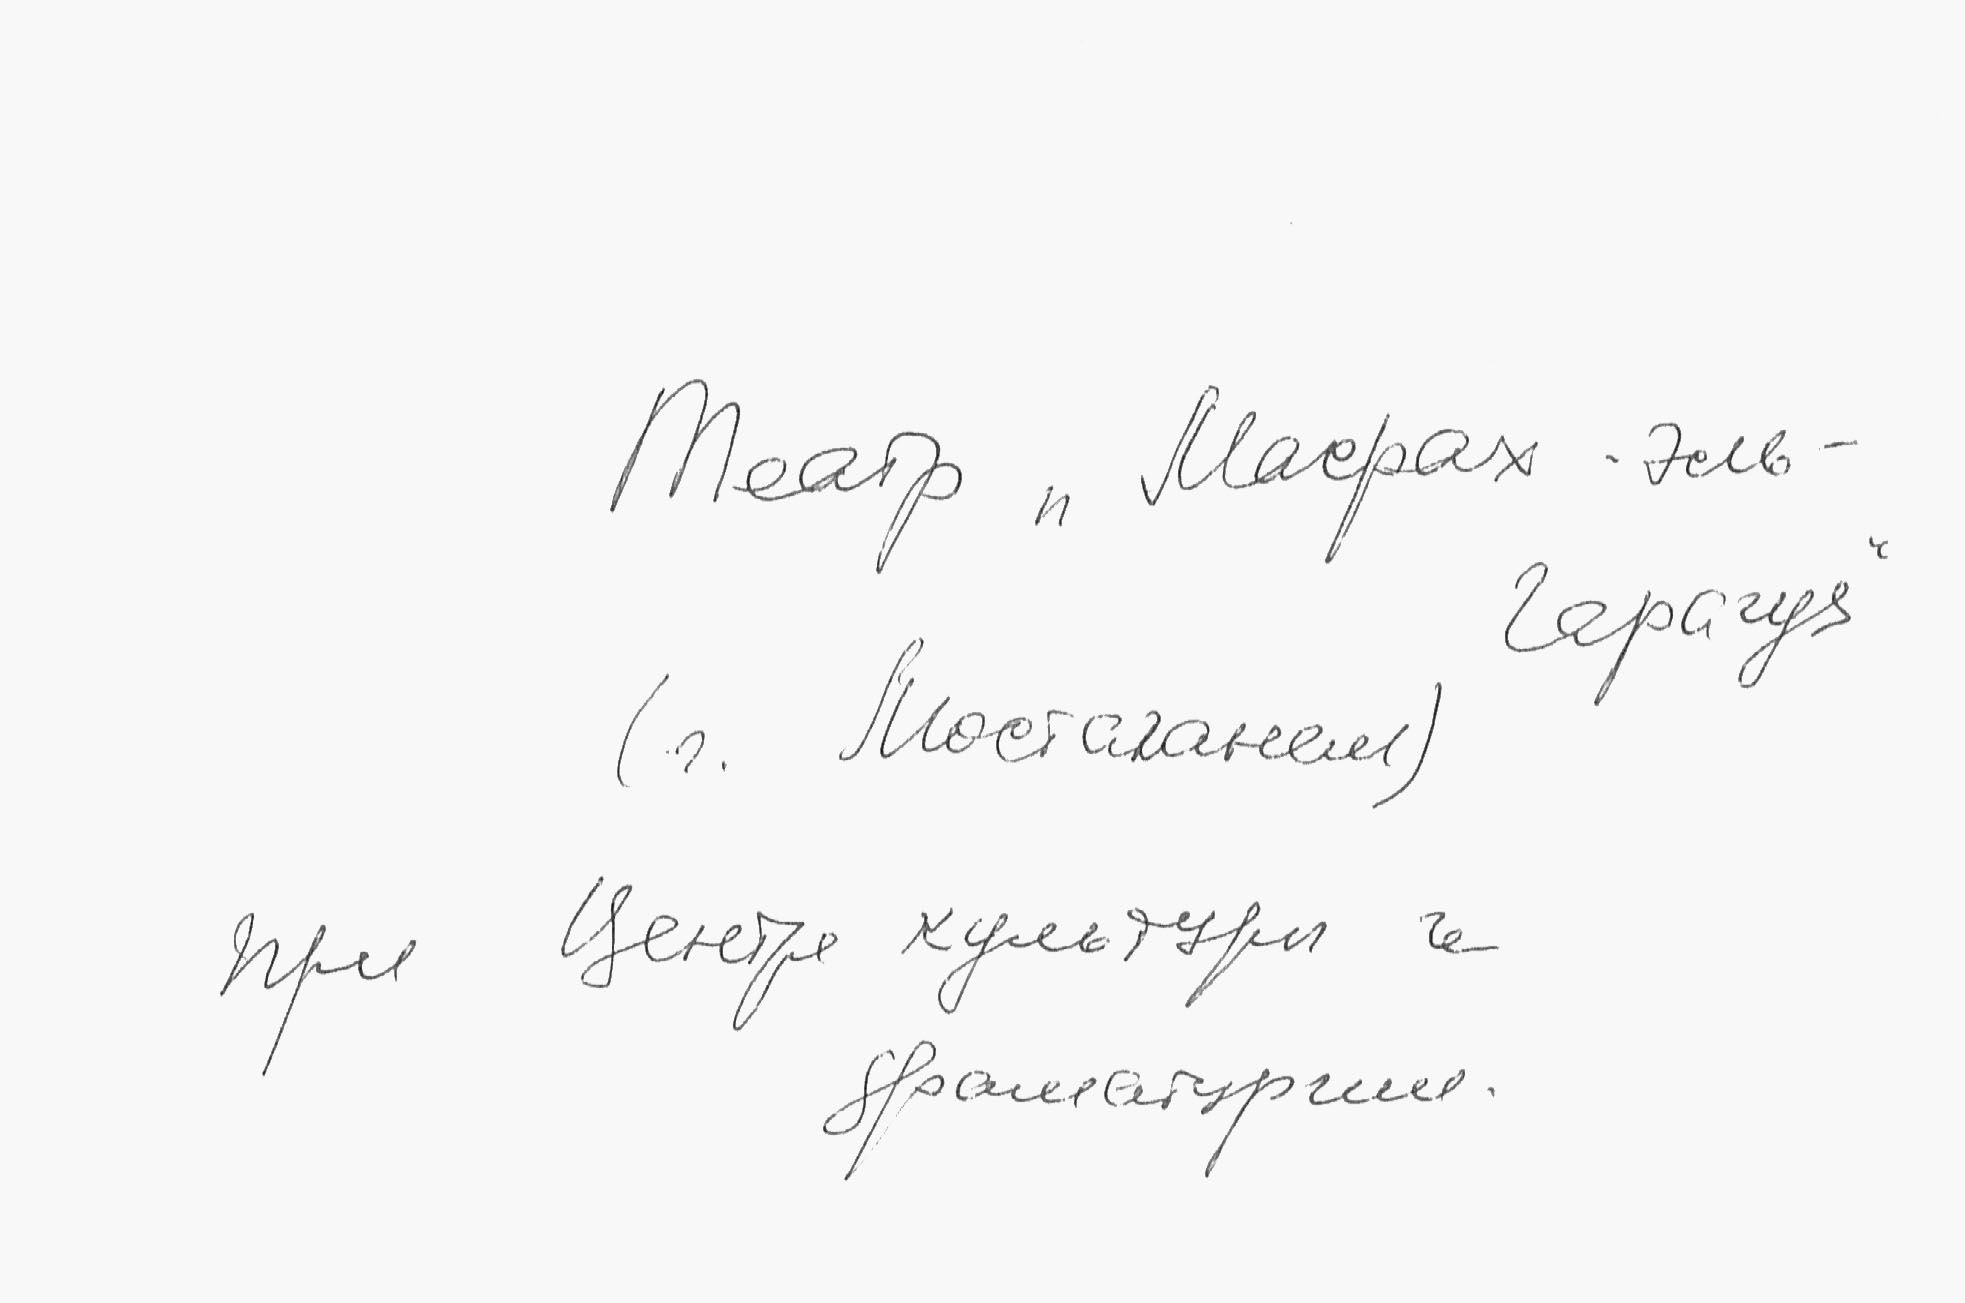 Театр „Масрах-эль-
Гарагуз“
(г. Мостаганем)
при Центре культуры и
драматургии.